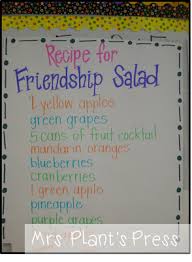 Recipe for
Friendship Salad
4 yellow apples
green grapes
5 cans of fruit cocktail
mandarin oranges
blueberries
cranberries
1 green apples
pineapple
purple grapes
Mrs Plant's Press